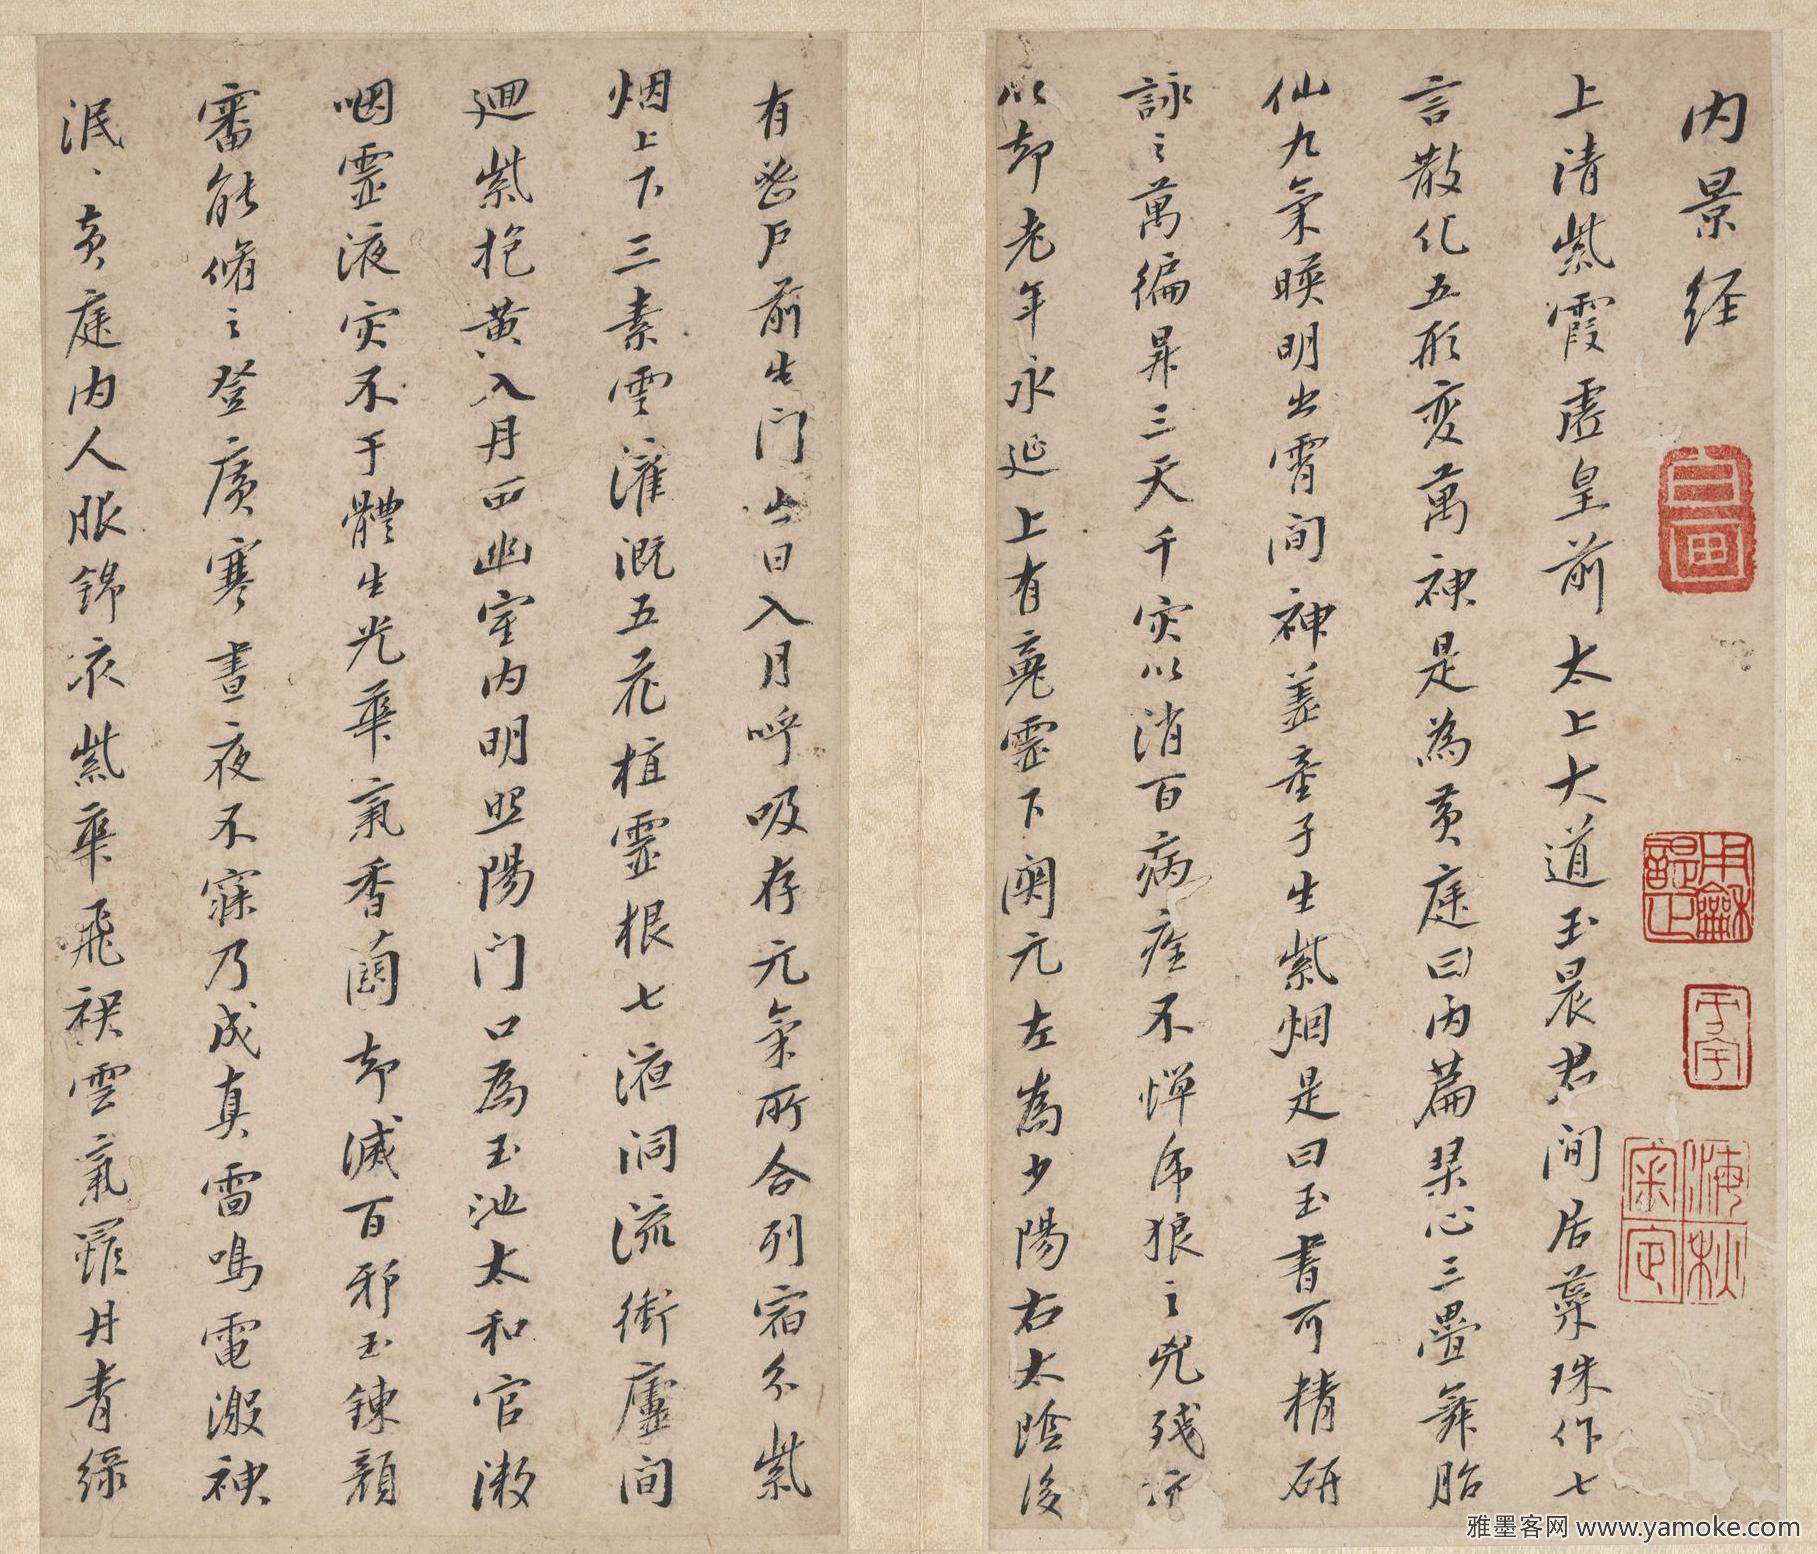 内景经
上清紫霞虛皇前太上大道玉晨君间居蘂珠作七
言散化五形变萬神是為黄庭曰内篇琹心三疊舞胎
仙九氣暎明出霄间神盖童子生紫烟是曰玉書可精研
詠之萬徧昇三天千灾以消百病痊不惮虎狼之兇残亦
以却老年永延上有䰟靈下関元左為少陽右太陰後
有密户前生门出日入月呼吸存元氣所合列宿分紫
烟上下三素雲灌溉五花植靈根七液洞流衝廬间
迴紫抱黄入丹田幽室内明照陽门口為玉池太和官漱
咽靈液灾不干體生光華氣香蘭却滅百邪玉鍊顔
審能脩之登廣寒晝夜不寐乃成真雷鳴電激神
泯泯黄庭内人服錦衣紫華飛裙雲氣羅丹青綠
雅墨客网 www.yamoke.com